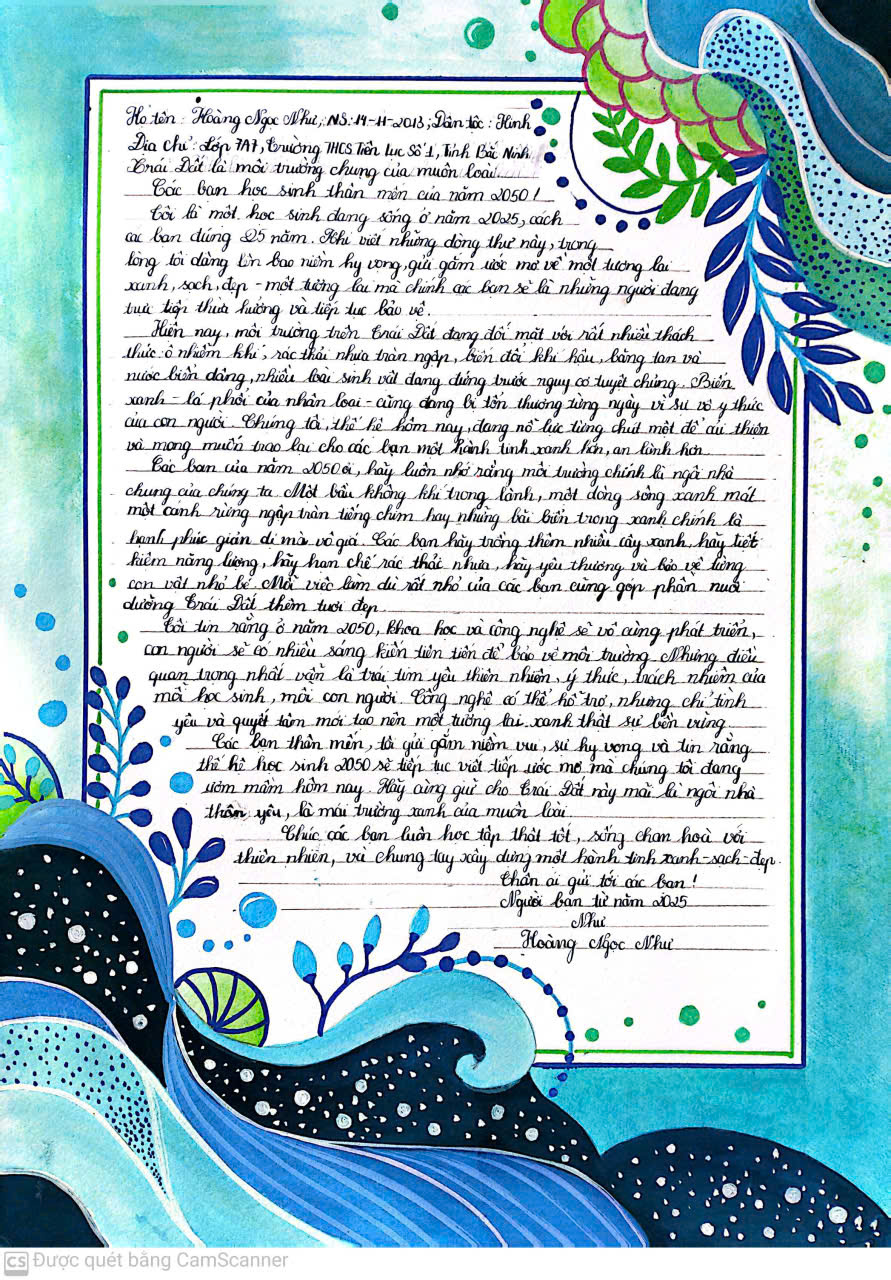 Họ tên: Hoàng Ngọc Như, NS: 14-11-2013, Dân tộc: Kinh
Địa chỉ: Lớp 7A7, Trường THCS Tiên Lục Số 1, Tỉnh Bắc Ninh
Trái Đất là môi trường chung của muôn loài.
Các bạn học sinh thân mến của năm 2050!
Tôi là một học sinh đang sống ở năm 2025, cách
các bạn đúng 25 năm. Khi viết những dòng thư này, trong
lòng tôi dâng lên bao niềm hy vọng, gửi gắm ước mơ về một tương lai
xanh, sạch, đẹp - một tương lai mà chính các bạn sẽ là những người đang
trực tiếp thừa hưởng và tiếp tục bảo vệ.
Hiện nay, môi trường trên Trái Đất đang đối mặt với rất nhiều thách
thức ô nhiễm khí, rác thải nhựa tràn ngập, biến đổi khí hậu, băng tan và
nước biển dâng, nhiều loài sinh vật đang đứng trước nguy cơ tuyệt chủng. Biển
xanh - lá phổi của nhân loại - cũng đang bị tổn thương từng ngày vì sự vô ý thức
của con người. Chúng tôi, thế hệ hôm nay, đang nỗ lực từng chút một để cải thiện
và mong muốn trao lại cho các bạn một hành tinh xanh hơn, an lành hơn.
Các bạn của năm 2050 ơi, hãy luôn nhớ rằng môi trường chính là ngôi nhà
chung của chúng ta. Một bầu không khí trong lành, một dòng sông xanh mát
một cánh rừng ngập tràn tiếng chim hay những bãi biển trong xanh chính là
hạnh phúc giản dị mà vô giá. Các bạn hãy trồng thêm nhiều cây xanh, hãy tiết
kiệm năng lượng, hãy hạn chế rác thải nhựa, hãy yêu thương và bảo vệ từng
con vật nhỏ bé. Mỗi việc làm dù rất nhỏ của các bạn cũng góp phần nuôi
dưỡng Trái Đất thêm tươi đẹp.
Tôi tin rằng ở năm 2050, khoa học và công nghệ sẽ vô cùng phát triển,
con người sẽ có nhiều sáng kiến tiên tiến để bảo vệ môi trường. Nhưng điều
quan trọng nhất vẫn là trái tim yêu thiên nhiên, ý thức, trách nhiệm của
mỗi học sinh, mỗi con người. Công nghệ có thể hỗ trợ, nhưng chỉ tình
yêu và quyết tâm mới tạo nên một tương lai xanh thật sự bền vững.
Các bạn thân mến, tôi gửi gắm niềm vui, sự hy vọng và tin rằng
thế hệ học sinh 2050 sẽ tiếp tục viết tiếp ước mơ mà chúng tôi đang
ươm mầm hôm nay. Hãy cùng giữ cho Trái Đất này mãi là ngôi nhà
thân yêu, là mái trường xanh của muôn loài.
Chúc các bạn luôn học tập thật tốt, sống chan hoà với
thiên nhiên, và chung tay xây dựng một hành tinh xanh-sạch-đẹp.
Thân ái gửi tới các bạn!
Người bạn từ năm 2025
Như
Hoàng Ngọc Như
CS Được quét bằng CamScanner